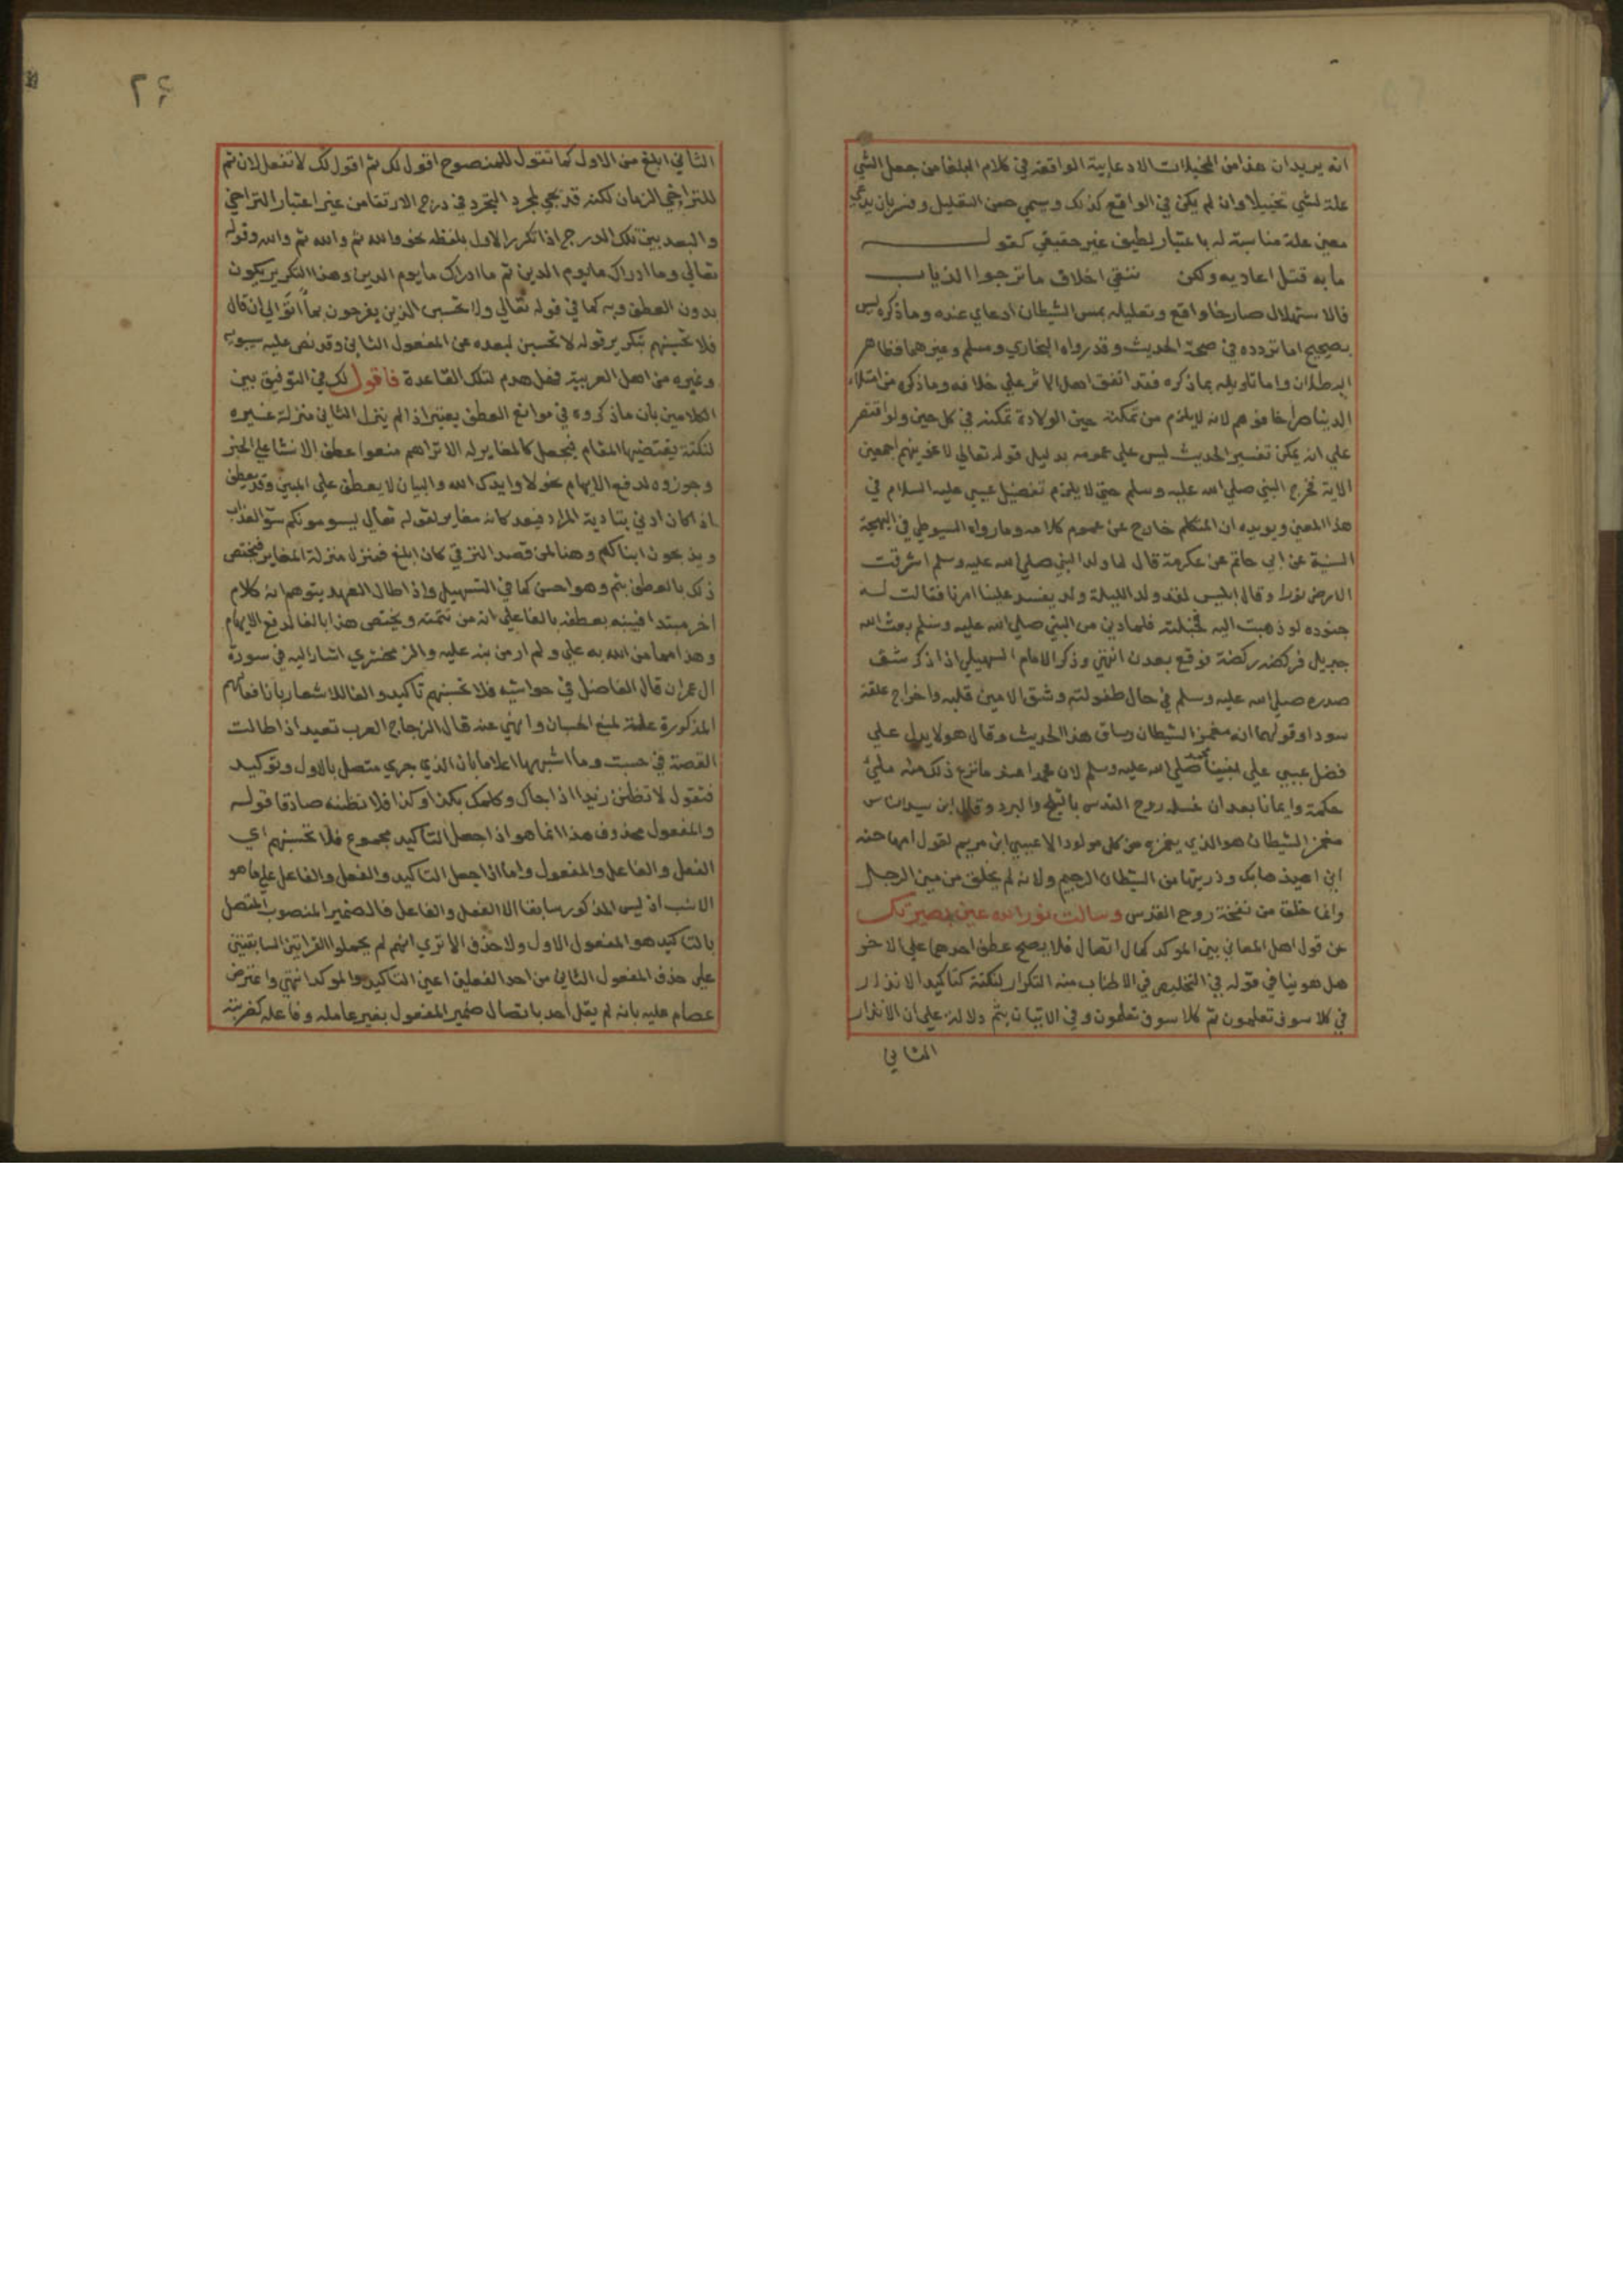 انه يريد ان هذا من المخيلات الادعايية الواقعة في كلام البلغا من جعل الشي
علة لشي تخييلا وان لم يكن في الواقع كذلك ويسمي حسن التعليل وفسر بان يدعي
معين علة مناسبة له باعتبار لطيف غير حقيقي كقولــــه
مابه قتل اعاديه ولكن يتقي اخلاف ماترجوا الذياب
فالاستهلال صارخا واقع وتعليله بمس الشيطان ادعاي عنده وماذكره ليس
بصحيح اما تردده في صحة الحديث وقد رواه البخاري ومسلم وغيرهما فظاهر
البطلان واما تاويله بما ذكره فقد اتفق اهل الاثر علي خلافه وماذكره من امتلاء
الدنيا صراخا فوهم لانه لايلزم من تمكنه حين الولادة تمكنه في كل حين ولو اقتصر
علي انه يمكن تفسير الحديث ليس علي عمومه بدليل قوله تعالي لاغوينهم اجمعين
الاية فخرج النبي صلي الله عليه وسلم حتي لا يلزم تفضيل عيسي عليه السلام في
هذا المعني ويويده ان المتكلم خارج عن عموم كلامه ومارواه السيوطي في البهجة
السنية عن ابي حاتم عن عكرمة قال لما ولد النبي صلي الله عليه وسلم اشرقت
الارض نورا وقال ابليس لقد ولد الليلة ولد يفسد علينا امرنا فقالت لــه
جنوده لو ذهبت اليه فخبلته فلما دني من النبي صلي الله عليه وسلم بعث الله
جبريل فركضه ركضة فوقع بعدن انتهي وذكر الامام السهيلي اذ اذكر شق
صدره صلي الله عليه وسلم في حال طفولته وشق الامين قلبه واخراج علقة
سودا وقولهما انه مغمز الشيطان وساق هذا الحديث وقال هو لا يدل علي
فضل عيسي علي نبينا محمد صلي الله عليه وسلم لان محمدا عند مانزع ذلك منه ملئ
حكمة وايمانا بعد ان غسله روح القدس بالثلج والبرد وقال ابن سيد الناس
مغمز الشيطان هو الذي يغمزه من كل مولود الا عيسي ابن مريم لقول امها حنه
اني اعيذها بك وذريتها من الشيطان الرجيم ولانه لم يخلق من مني الرجال
وانما خلق من نفخة روح القدس وسالت نور الله عين بصيرتك
عن قول اهل المعاني بين الموكد كمال اتصال فلا يصح عطف احدهما علي الاخر
هل هو ينافي قوله في التخليص في الاطناب منه التكرار لنكتة كتاكيد الانذار
في كلا سوف تعلمون ثم كلا سوف تعلمون وفي الاتيان بثم دلالة علي ان الانذار
الثاني
٢٤
الثاني ابلغ من الاول كما تقول للمنصوح اقول لك ثم اقول لك لا تفعل لان ثم
للتراخي الزمان لكنه قد يجي لمجرد التجرد في درج الارتقا من غير اعتبار التراخي
والبعد بين تلك الدرج اذا تكرر الاول بلفظه نحو والله ثم والله ثم والله وقوله
تعالي وما ادراك مايوم الدين ثم ما ادراك مايوم الدين وهذا التكرير يكون
بدون العطف وبه كما في قوله تعالي ولا تحسبن الذين يفرحون بما اتوا الي ان قال
فلا تحسبنهم بتكرير قوله لا تحسبن لبعده عن المفعول الثاني وقد نص عليه سيبويه
وغيره من اهل العربية فهل هدم لتلك القاعدة فاقول لك في التوفيق بين
الكلامين بان ماذكروه في موانع العطف يعتبر اذا لم ينزل الثاني منزلة غيره
لنكتة يقتضيها المقام فيجعل كالمغاير له الا تراهم منعوا عطف الانشا علي الخبر
وجوزوه لدفع الايهام نحو لا وايدك الله والبيان لا يعطف علي المبين وقد يعطف
اذا كان ادني بتادية المراد فيعد كانه مغاير لقوله تعالي يسومونكم سؤ العذاب
ويذبحون ابناكم وهنا لمن قصد الترقي كان ابلغ فينزل منزلة المغاير فيختص
ذلك بالعطف بثم وهو احسن كما في التسهيل واذا طال العهد يتوهم انه كلام
اخر مبتدا فينبه بعطفه بالفا علي انه من تتمته ويختص هذا بالفا لدفع الايهام
وهذا مما من الله به علي ولم ار من نبه عليه والزمخشري اشار اليه في سورة
ال عمران قال الفاضل في حواشيه فلا تحسبنهم تاكيد والفا للاشعار بان افعالهم
المذكورة علة لمنع الحسبان والنهي عنه قال الزجاج العرب تعيد اذا طالت
القصة في حسبت وما اشبهها اعلاما بان الذي جري متصل بالاول وتوكيد
فتقول لا تظنن زيدا اذا جاك وكلمك بكذا وكذا فلا تظننه صادقا قولــه
والمفعول محذوف هذا انما هو اذا جعل التاكيد مجموع فلا تحسبنهم اي
الفعل والفاعل والمفعول واما اذا جعل التاكيد والفعل والفاعل علي ما هو
الانسب اذ ليس المذكور سابقا الا الفعل والفاعل فالضمير المنصوب المتصل
بالتاكيد هو المفعول الاول ولا حذف الا تري انهم لم يحملوا القراتين السابقتين
علي حذف المفعول الثاني من احد الفعلين اعني التاكيد والموكد انتهي واعترض
عصام عليه بانه لم يقل احد باتصال ضمير المفعول بغير عامله وفاعله كضربته